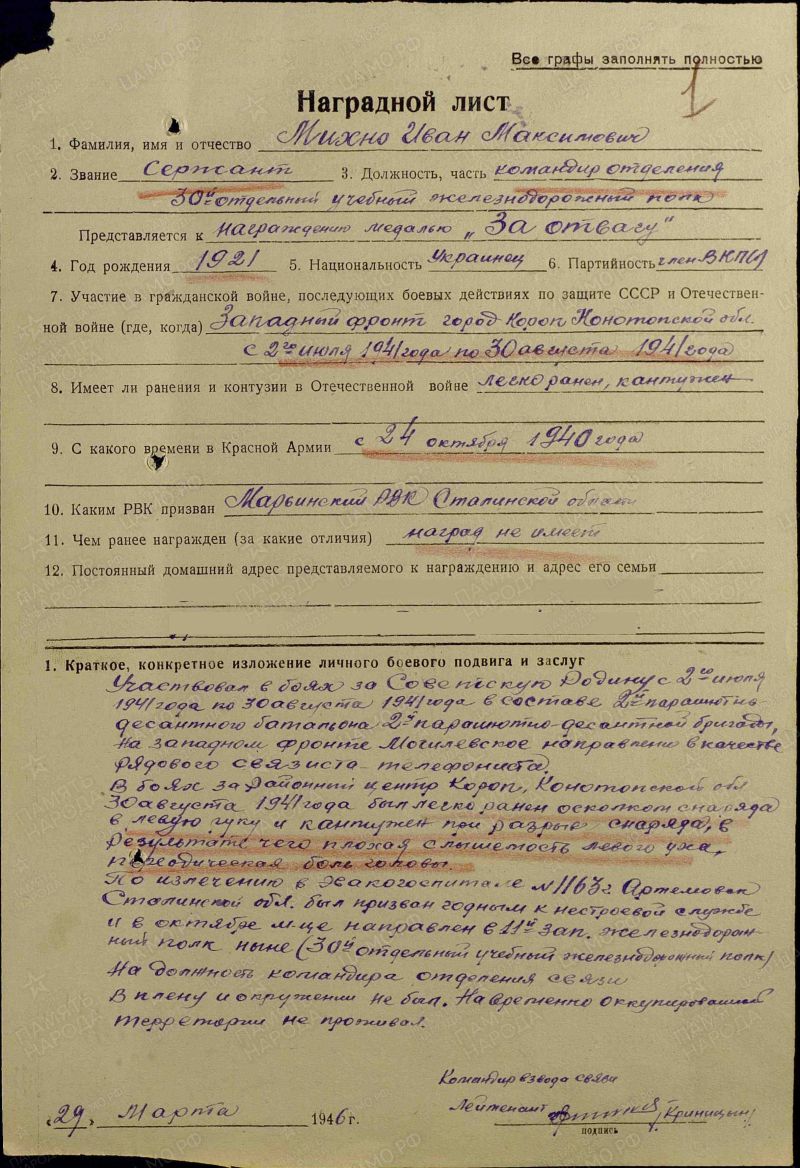 Все графы заполнять полностью
1
Наградной лист
1. Фамилия, имя и отчество Михно Иван Максимович
2. Звание Сержант 3. Должность, часть командир отделения
30й отдельный учебный железнодорожный полк
Представляется к награждению медалью „За отвагу"
4. Год рождения 1921 5. Национальность Украинец 6. Партийность член ВКП(б)
7. Участие в гражданской войне, последующих боевых действиях по защите СССР и Отечествен-
ной войне (где, когда) Западный фронт город Короп Конотопской обл.
с 2го июля 1941 года по 30 августа 1941 года
8. Имеет ли ранения и контузии в Отечественной войне легко ранен, кантужен
9. С какого времени в Красной Армии с 24 октября 1940 года
10. Каким РВК призван Марьинский РВК Сталинской области
11. Чем ранее награжден (за какие отличия) наград не имеет
12. Постоянный домашний адрес представляемого к награждению и адрес его семьи
1. Краткое, конкретное изложение личного боевого подвига и заслуг
Участвовал в боях за Советскую Родину с 2го июля
1941 года по 30 августа 1941 года в составе 2го парашютно-
десантного батальона 2й парашютно-десантной бригады,
на западном фронте Могилевское направление в качестве
рядового связиста-телефониста.
В боях за районный центр Короп, Конотопской обл
30 августа 1941 года был легко ранен осколком снаряда
в левую руку и кантужен при разрыве снаряда, в
результате чего плохая слышемость левого уха,
периодическая боль головы.
По излечению в Эвакогоспитале № 1163 г. Артемовск
Сталинской обл. был призван годным к нестроевой службе
и в октябре м-це направлен в 11й зап. железнодорож-
ный полк ныне (30й отдельный учебный железнодорожный полк)
на должность командира отделения связи
В плену и окружении не был. На временно оккупированной
терретории не проживал.
Командир взвода связи
Лейтенант /Криницын/
подпись
„29„ Марта 1946 г.